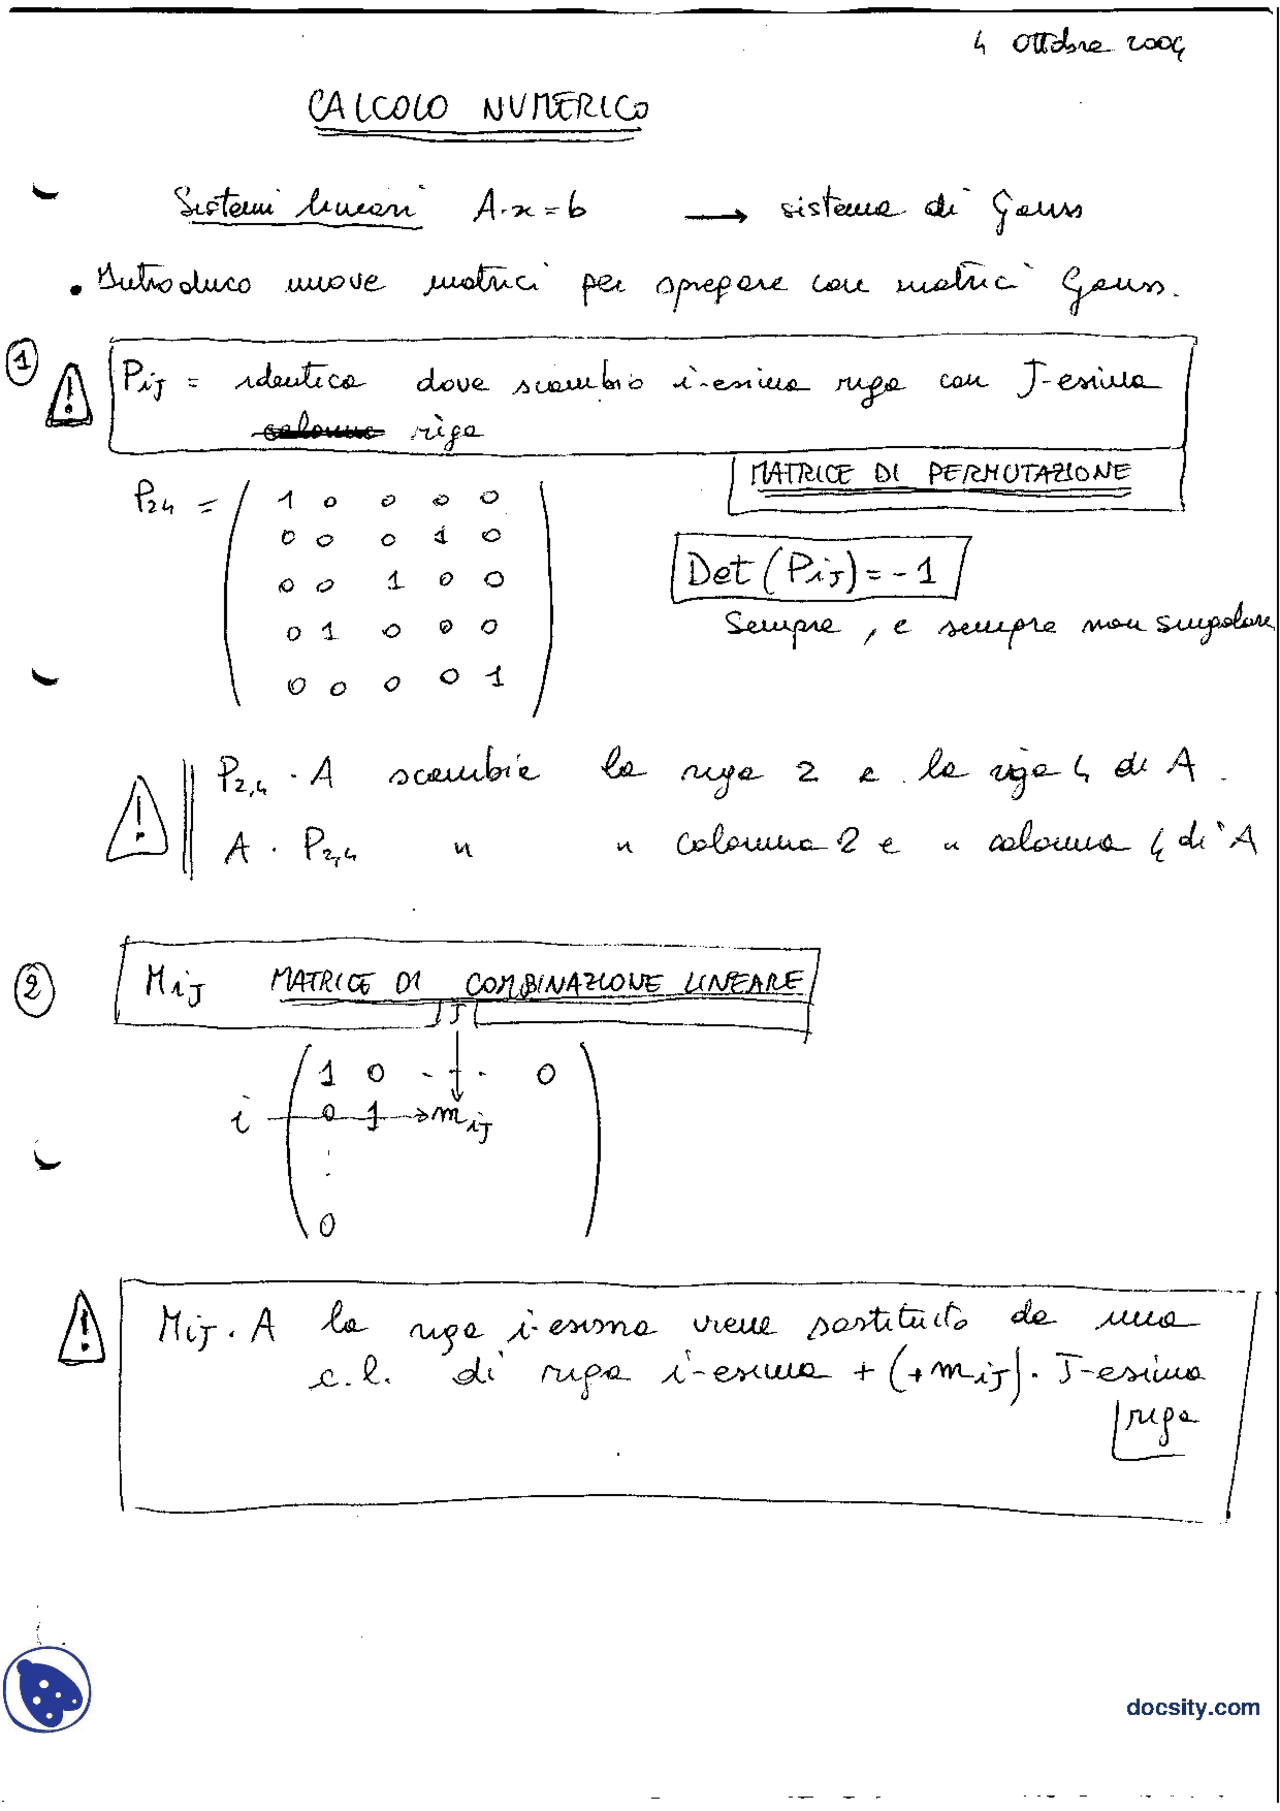 4 Ottobre 2004
CALCOLO NUMERICO
Sistemi lineari A·x=b → sistema di Gauss
• Introduco nuove matrici per spiegare con matrici Gauss.
1
! Pij = identica dove scambio i-esima riga con J-esima
colonna riga
MATRICE DI PERMUTAZIONE
P24 = ( 1 0 0 0 0
0 0 0 1 0
0 0 1 0 0
0 1 0 0 0
0 0 0 0 1 )
Det (PiJ) = -1
Sempre, e sempre non singolare
! P2,4 · A scambia la riga 2 e la riga 4 di A.
A · P2,4 " " colonna 2 e " colonna 4 di A
2
MiJ MATRICE DI COMBINAZIONE LINEARE
J
( 1 0 . . . 0
i 0 1 → miJ
:
0 )
! MiJ · A la riga i-esima viene sostituito da una
c.l. di riga i-esima + (+miJ) · J-esima
riga
docsity.com